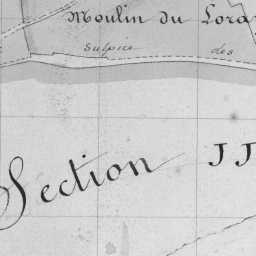 Moulin du Lora
sulpice des
Section JJ